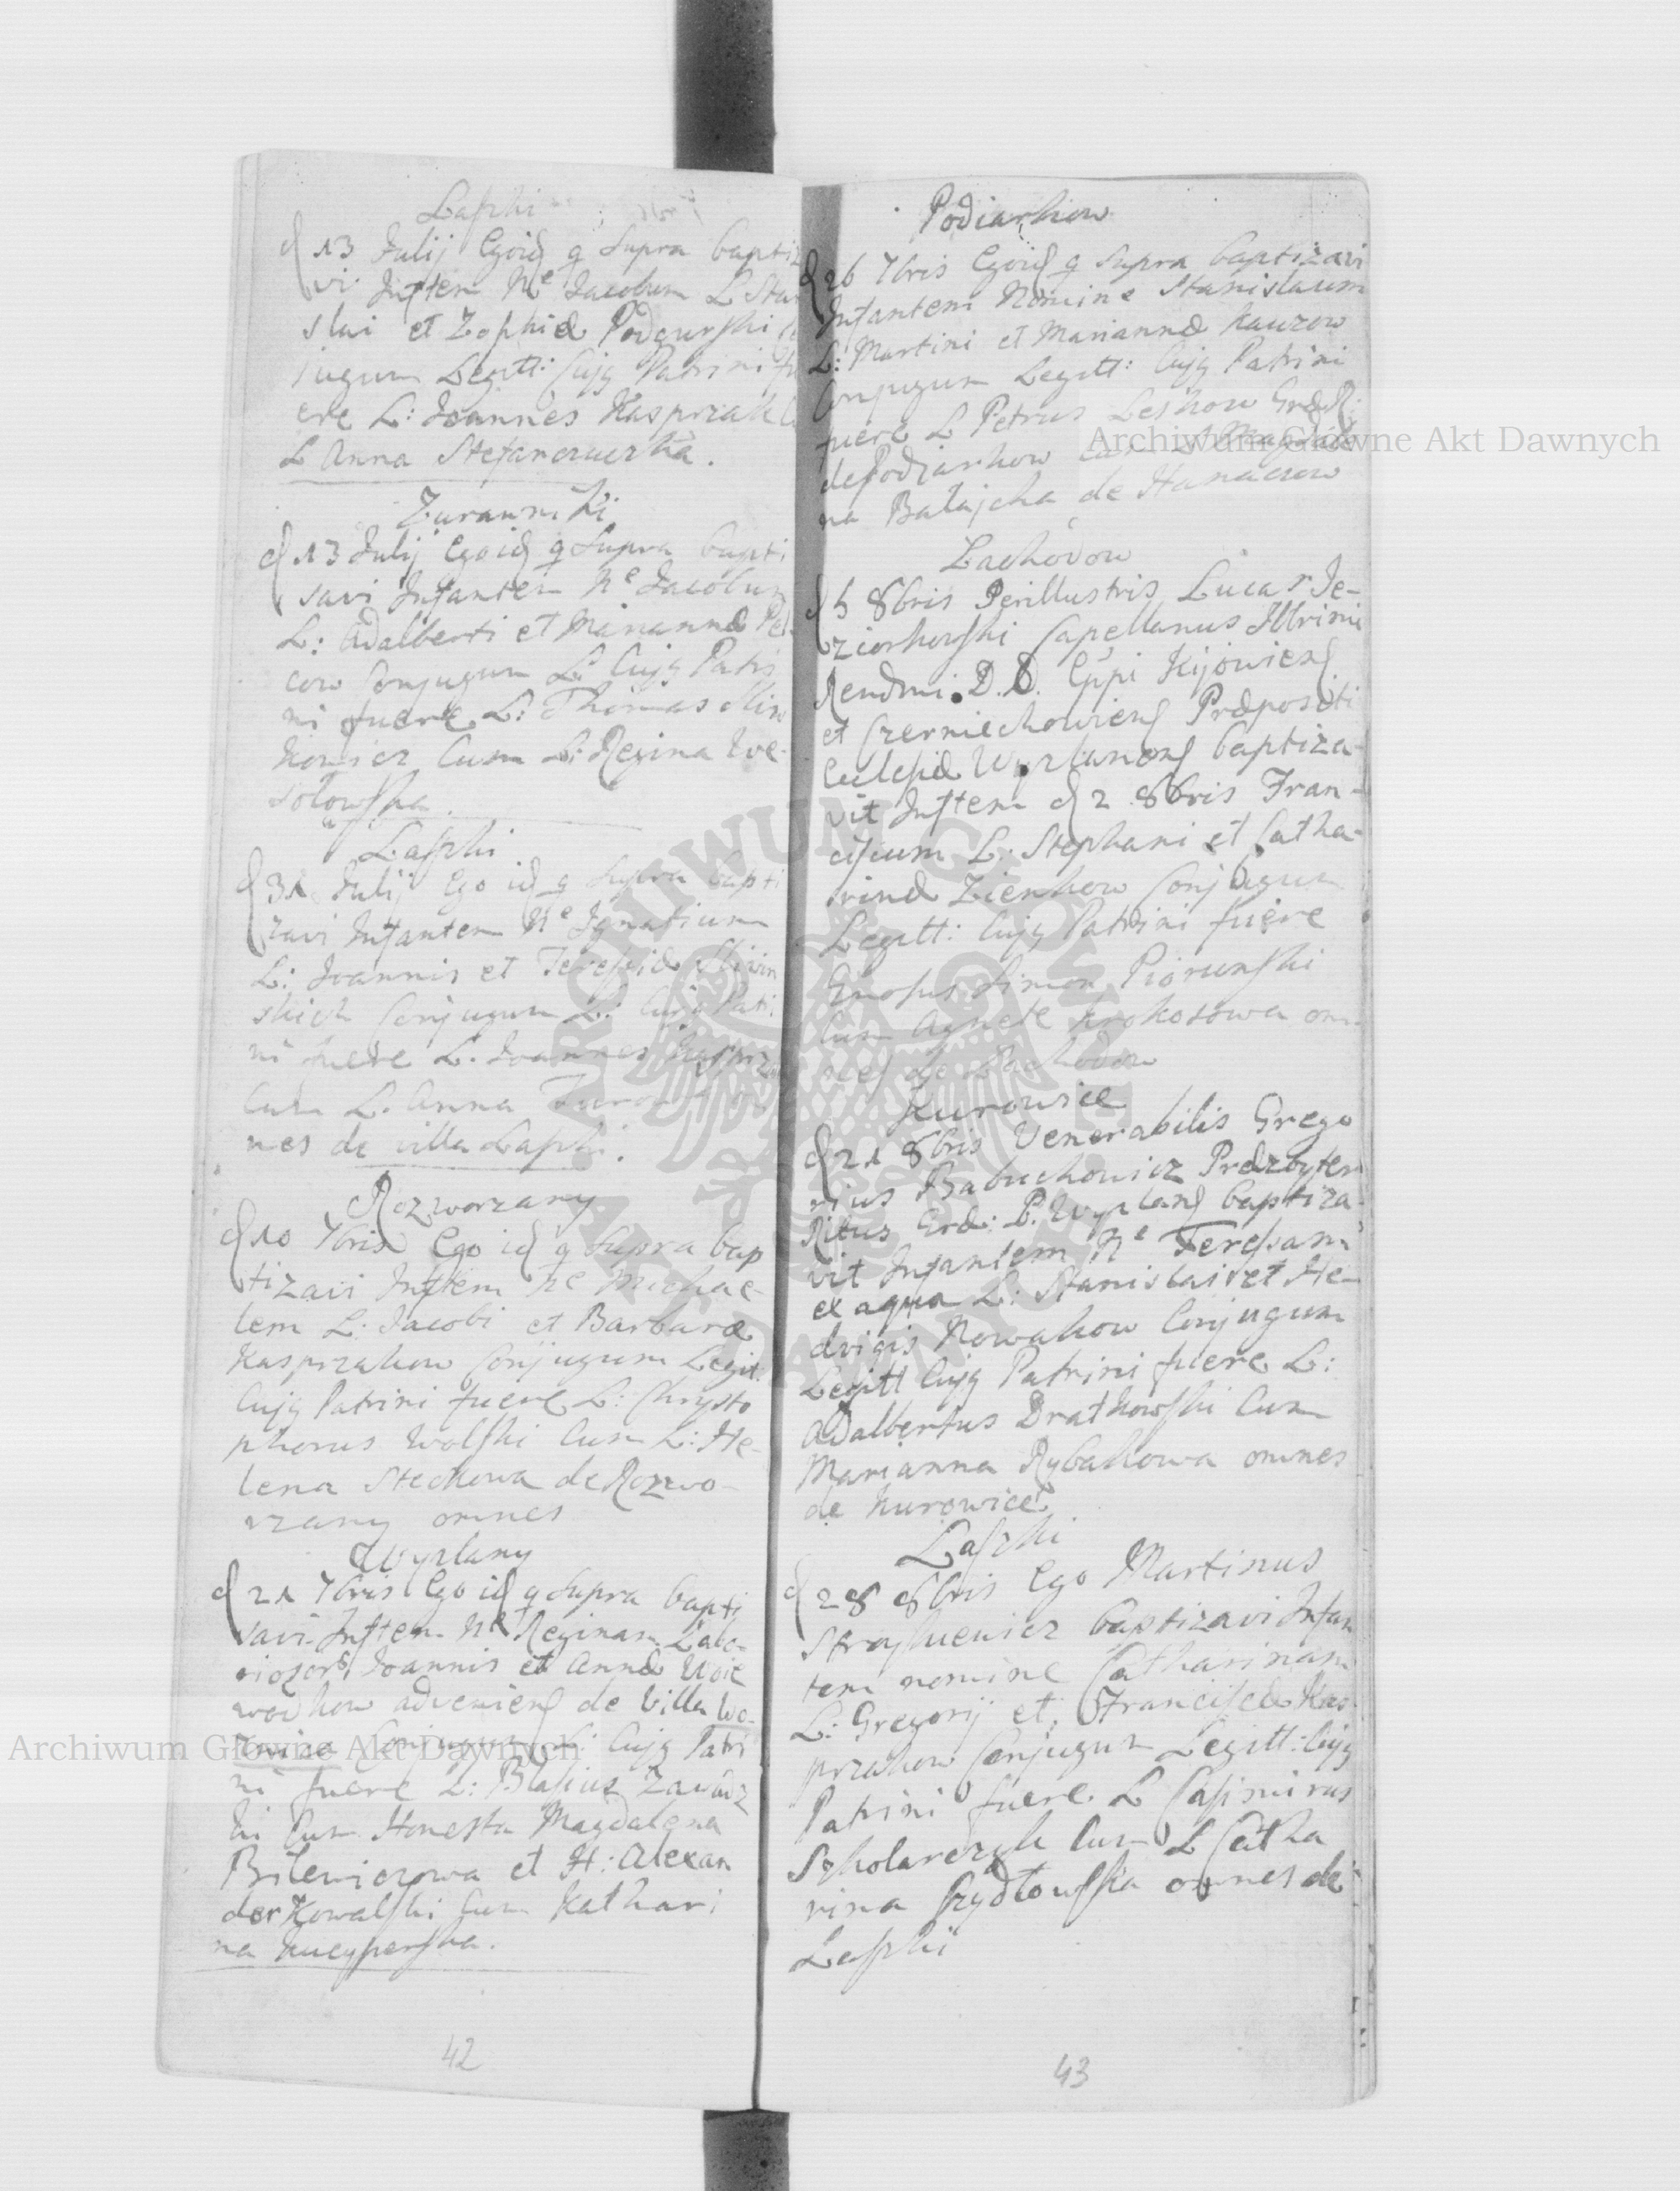 Laszki
d 13 Julij Ego id q Supra bapti
vi Inftem Ne Jacobum L Sta
slai et Zophiæ Podgurski
jugum Legitt: Cujq Patrini fu
ere L: Joannes Kasprzak
L Anna Stefanczuerka.
Zurawniki
d 13 Julij Ego id q Supra bapti
savi Infantem Ne Jacobum
L: Adalberti et Mariannæ Pel
cow Conjugum L: Cujq Patri
ni fuere L: Thomas
kowicz Cum L: Regina We-
solowska.
Laszki
d 31 Julij Ego id q Supra bapti
zavi Infantem Ne Ignatium
L: Joannis et Teressiæ
skich Conjugum L: Cujq Patri
ni fuere L. Joannes Kasprza
Cum L. Anna
nes de villa Laszki.
Rozworzany
d 10 7bris Ego id q Supra bap
tizavi Inftem Ne Michae-
lem L: Jacobi et Barbaræ
Kasprzakow Conjugum Legit:
Cujq Patrini fuere L: Chrysto
phorus Wolski Cum L: He-
lena Stechowa de Rozwo-
rzany omnes
Wyzlany
d 21 7bris Ego id q Supra bapti
savi Inftem Ne Reginam Labo-
riosors Joannis et Annæ Woie
wodkow advenien de Villa Wo-
Conjugum L: Cujq Patri
ni fuere L: Blasius Zawadz
ki Cum Honesta Magdalena
Bilewiczowa et H: Alexan
der Kowalski Cum Kathari
na Kucyperska.
42
Podiarkow
d 26 7bris Ego id q Supra baptizavi
Infantem Nomine Stanislaum
L: Martini et Mariannæ Kauzow
Conjugum Legitt: Cujq Patrini
fuere L Petrus Leskow Græ R:
de Podiarkow Cum L Magdale
na Balajcha de Hanaczow
Lachodow
d 5 8bris Perillustris Lucas Je-
ziorkowski Capellanus Illrimi
Rendmi D. D. Eppi Kijowien
et Czerniechowien Præpositi
Eclesiæ Wyzlanen baptiza-
vit Inftem d 2 8bris Fran-
ciscum L: Stephani et Catha-
rinæ Zienkow Conjugum
Legitt: Cujq Patrini fuere
Gnosus Simon Piorunski
Cum Agnete Krokosowa om-
nes de Lachodow
Kurowice
d 21 8bris Venerabilis Grego
rius Babuchowicz Præzbyter
Ritus Græ: P. Wyzlan baptiza-
vit Infantem Ne Teressam
ex aqua L: Stanislai et He-
dvigis Nowakow Conjugum
Legitt Cujq Patrini fuere L:
Adalbertus Dratkowski Cum
Marianna Rybakowa omnes
de Kurowice
Laszki
d 28 8bris Ego Martinus
baptizavi Infan
tem nomine Catharinam
L: Gregorij et Franciscæ Kas
przakow Conjugum Legitt: Cujq
Patrini fuere L Casimirus
Szkolarczyk Cum L Catha
rina Szydłowska omnes de
Laszki
43
Archiwum Główne Akt Dawnych
Archiwum Główne Akt Dawnych
ARCHIWUM GŁÓWNE AKT DAWNYCH